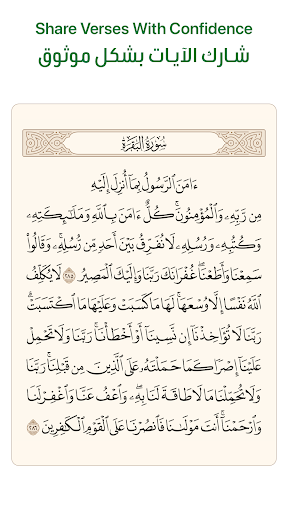 Share Verses With Confidence
شارك الآيات بشكل موثوق
سُورَةُ البَقَرَةِ
ءَامَنَ ٱلرَّسُولُ بِمَآ أُنزِلَ إِلَيْهِ
مِن رَّبِّهِۦ وَٱلْمُؤْمِنُونَۚ كُلٌّ ءَامَنَ بِٱللَّهِ وَمَلَـٰٓئِكَتِهِۦ
وَكُتُبِهِۦ وَرُسُلِهِۦ لَا نُفَرِّقُ بَيْنَ أَحَدٍ مِّن رُّسُلِهِۦۚ وَقَالُوا۟
سَمِعْنَا وَأَطَعْنَاۖ غُفْرَانَكَ رَبَّنَا وَإِلَيْكَ ٱلْمَصِيرُ ٢٨٥ لَا يُكَلِّفُ
ٱللَّهُ نَفْسًا إِلَّا وُسْعَهَاۚ لَهَا مَا كَسَبَتْ وَعَلَيْهَا مَا ٱكْتَسَبَتْۗ
رَبَّنَا لَا تُؤَاخِذْنَآ إِن نَّسِينَآ أَوْ أَخْطَأْنَاۚ رَبَّنَا وَلَا تَحْمِلْ
عَلَيْنَآ إِصْرًا كَمَا حَمَلْتَهُۥ عَلَى ٱلَّذِينَ مِن قَبْلِنَاۚ رَبَّنَا
وَلَا تُحَمِّلْنَا مَا لَا طَاقَةَ لَنَا بِهِۦۖ وَٱعْفُ عَنَّا وَٱغْفِرْ لَنَا
وَٱرْحَمْنَآۚ أَنتَ مَوْلَىٰنَا فَٱنصُرْنَا عَلَى ٱلْقَوْمِ ٱلْكَـٰفِرِينَ ٢٨٦